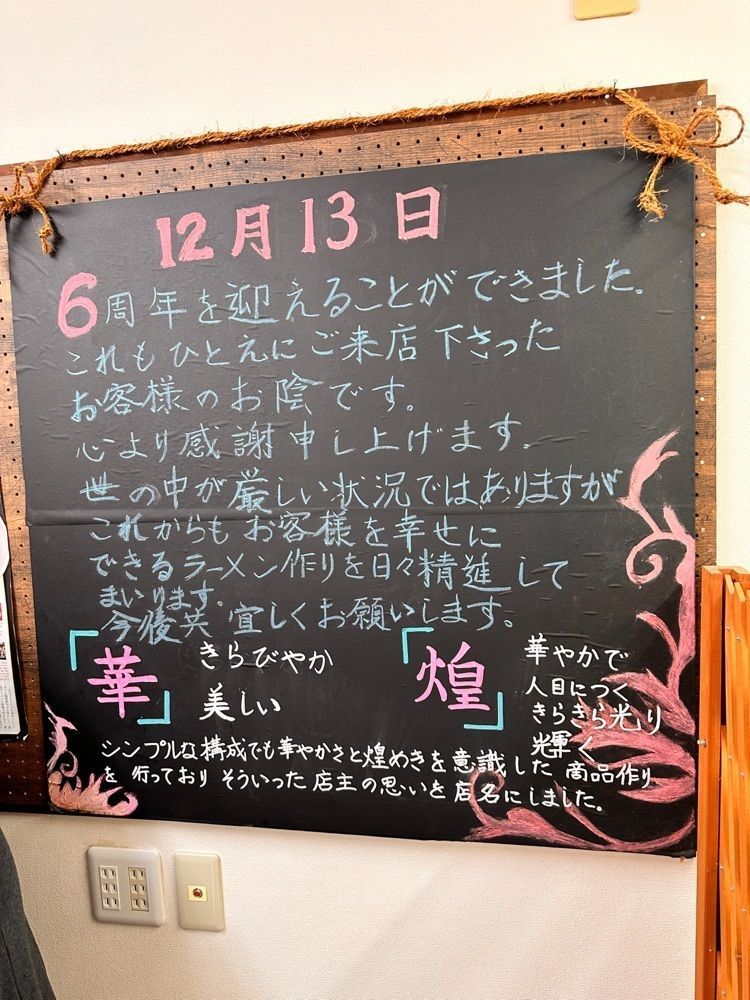 12月13日
6周年を迎えることができました。
これもひとえにご来店下さった
お客様のお陰です。
心より感謝申し上げます。
世の中が厳しい状況ではありますが
これからもお客様を幸せに
できるラーメン作りを日々精進して
まいります。
今後共宜しくお願いします。
「華」
きらびやか
美しい
「煌」
華やかで
人目につく
きらきら光り
輝く
シンプルな構成でも華やかさと煌めきを意識した商品作り
を行っておりそういった店主の思いを店名にしました。